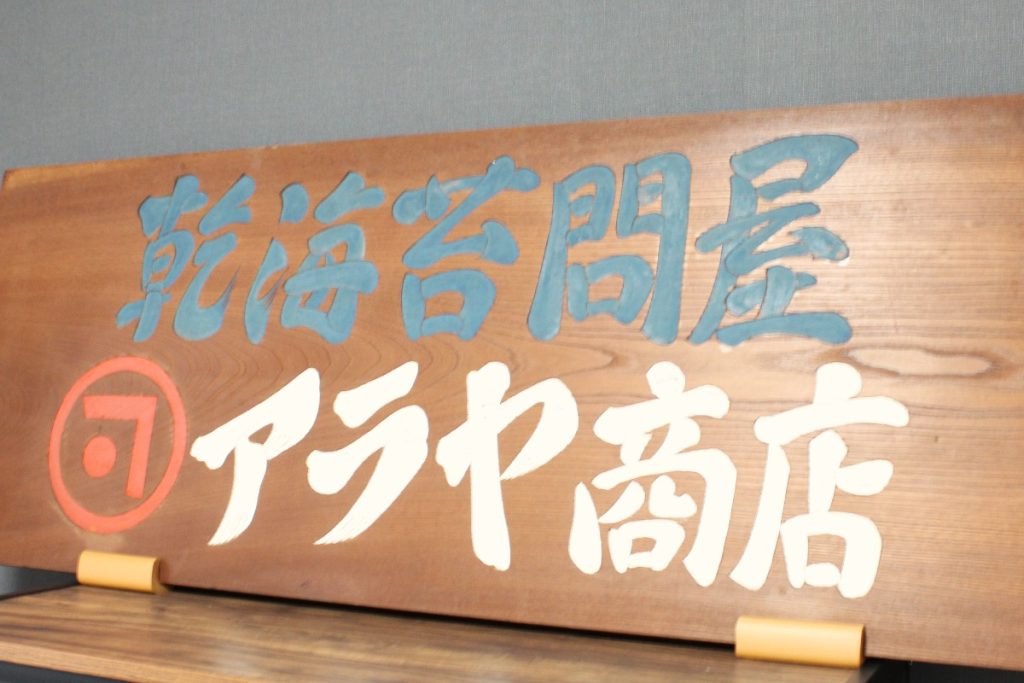 乾海苔問屋
アラヤ商店